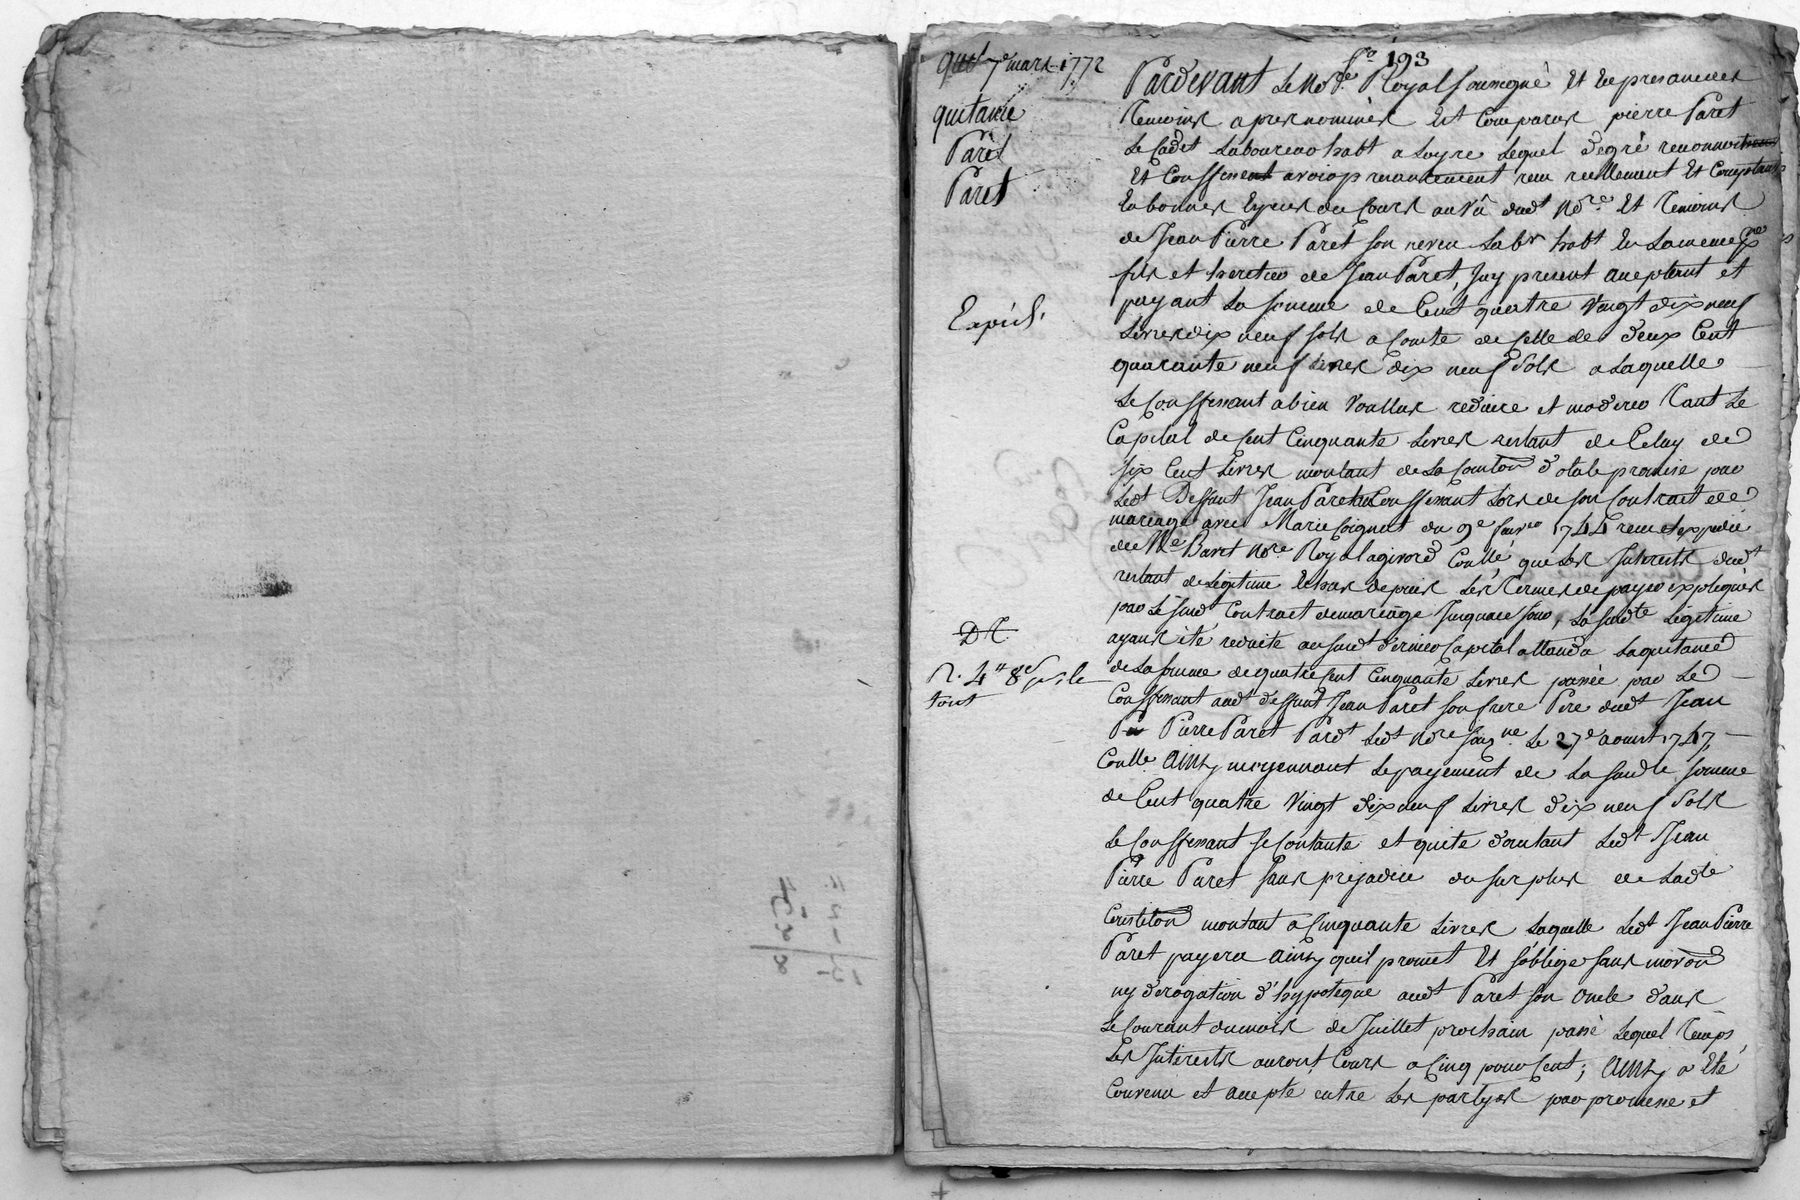 fo 193
quit 7e mars 1772
quitance
Paret
Paret
Expéd.
DR
R. 4tt 8s le
tout
Pardevant Le Nore Royal soussigné Et En presances
Temoins apres nommés Est Comparus pierre Paret
Le Cadet Laboureur habt a Loyre Lequel de gré reconnoit
Et Confesse avoir presantement reçu reellement Et Comptant
En bonnes Especes du Cours au vû dudt Nore Et Temoins
de Jean Pierre Paret son neveu Labr habt En La meme psse
fils et heretier de Jean Paret, Icy present acceptant et
payant La somme de Cent quatre Vingt dix neuf
Livres dix neuf sols a Comte de Celle de deux Cent
quarante neuf Livres dix neuf Sols a Laquelle
Le Confessant a bien voullus reduire et moderer Tant Le
Capital de Cent Cinquante Livres restant de Celuy de
six Cent Livres montant de La Constton dotale promise par
Ledt Deffunt Jean Paret au Confessant Lors de son Contract de
mariage avec Marie Coignet du 9e 1744 reçu et expedié
de Me Baret Nore Royal a givord Conllé que Les Interests dudt
restant de Legitime Echus depuis Les Termes de payer expliqués
par Le Susdt Contract de mariage Jusqu'a ce jour, La Susdte Legitime
ayant été reduite au Susdt dernier Capital attandu La quitance
de La somme de quatre Cent Cinquante Livres passée par Le
Confessant audt deffunt Jean Paret son frere Pere dudt Jean
Pierre Paret Pardt Ledt Nore Sousne Le 27e aoust 1747,
Conllé Ainsy moyennant Le payement de La Susdte somme
de Cent quatre Vingt dix neuf Livres dix neuf Sols
Le Confessant se Contante et quite d'autant Ledt Jean
Pierre Paret sans prejudice du surplus de Ladte
Constiton montant a Cinquante Livres Laquelle Ledt Jean Pierre
Paret payera Ainsy qu'il promet Et s'oblige sans novon
ny derogation d'hypoteque audt Paret son oncle dans
Le Courant du mois de Juillet prochain passé Lequel Temps
Les Interests auront Cours a Cinq pour Cent; Ainsy a Eté
Convenu et accepté entre Les partyes par promesse et